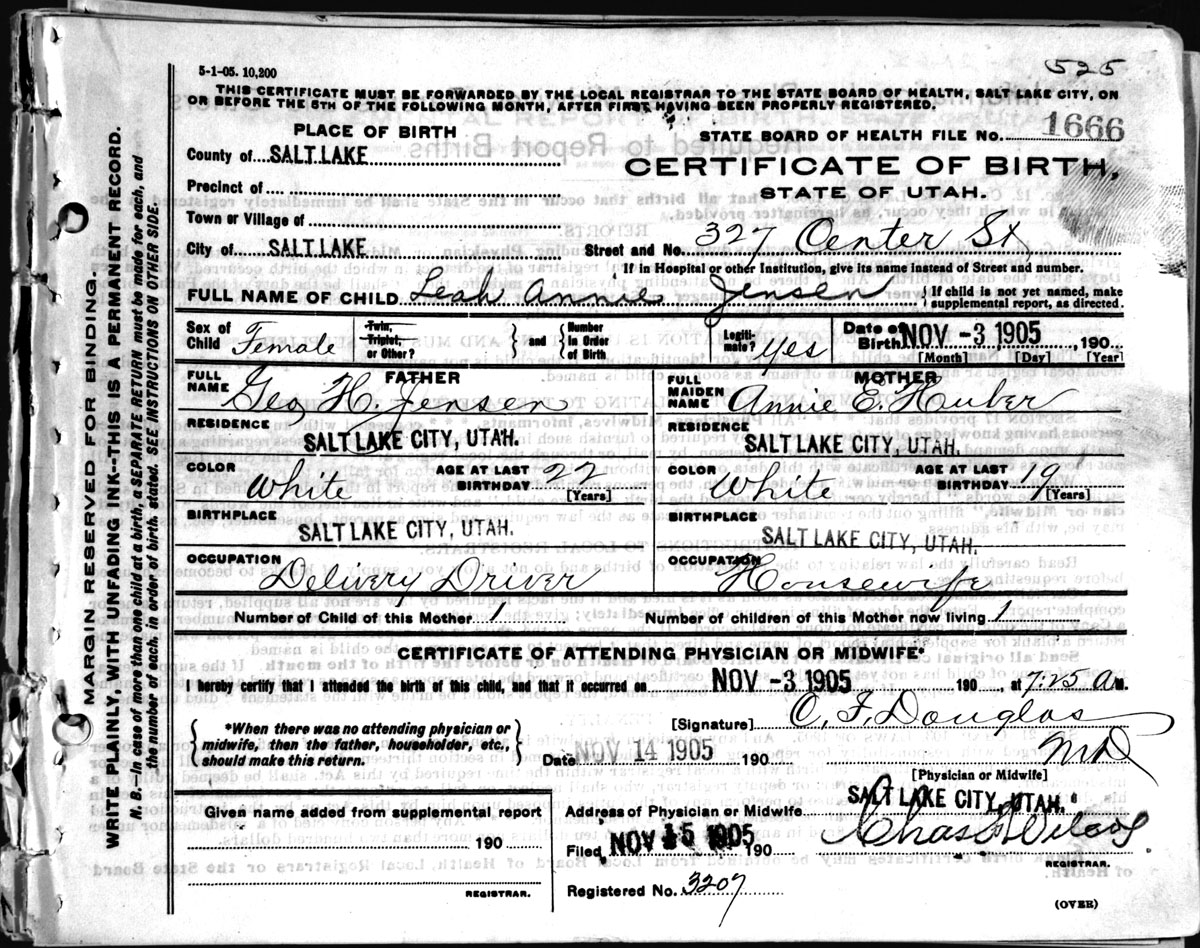 5-1-05. 10,200
525
THIS CERTIFICATE MUST BE FORWARDED BY THE LOCAL REGISTRAR TO THE STATE BOARD OF HEALTH, SALT LAKE CITY, ON
OR BEFORE THE 5TH OF THE FOLLOWING MONTH, AFTER FIRST HAVING BEEN PROPERLY REGISTERED.
PLACE OF BIRTH
STATE BOARD OF HEALTH FILE No. 1666
County of SALT LAKE
CERTIFICATE OF BIRTH,
STATE OF UTAH.
Precinct of
Town or Village of
City of SALT LAKE
Street and No. 327 Center St
If in Hospital or other Institution, give its name instead of Street and number.
FULL NAME OF CHILD Leah Annie Jensen { If child is not yet named, make
supplemental report, as directed.
Sex of Child Female
Twin, Triplet, or Other?
} and { Number In Order of Birth
Legiti-mate? Yes
Date of Birth NOV -3 1905, 190
[Month] [Day] [Year]
FATHER
FULL NAME Geo. H. Jensen
RESIDENCE
SALT LAKE CITY, UTAH.
COLOR White
AGE AT LAST BIRTHDAY 22 [Years]
BIRTHPLACE
SALT LAKE CITY, UTAH.
OCCUPATION
Delivery Driver
MOTHER
FULL MAIDEN NAME Annie E. Huber
RESIDENCE
SALT LAKE CITY, UTAH.
COLOR White
AGE AT LAST BIRTHDAY 19 [Years]
BIRTHPLACE
SALT LAKE CITY, UTAH.
OCCUPATION
Housewife
Number of Child of this Mother 1
Number of children of this Mother now living 1
CERTIFICATE OF ATTENDING PHYSICIAN OR MIDWIFE*
I hereby certify that I attended the birth of this child, and that it occurred on NOV -3 1905 190, at 7:25 a m.
{ *When there was no attending physician or
midwife, then the father, householder, etc.,
should make this return. }
[Signature] C. F. Douglas
MD
Date NOV 14 1905 190
[Physician or Midwife]
Given name added from supplemental report
190
REGISTRAR.
Address of Physician or Midwife SALT LAKE CITY, UTAH.
Filed NOV 15 1905 190
Chas Wilcox
REGISTRAR.
Registered No. 3207
(OVER)
MARGIN RESERVED FOR BINDING.
WRITE PLAINLY, WITH UNFADING INK--THIS IS A PERMANENT RECORD.
N. B.--In case of more than one child at a birth, a SEPARATE RETURN must be made for each, and
the number of each, in order of birth, stated. SEE INSTRUCTIONS ON OTHER SIDE.